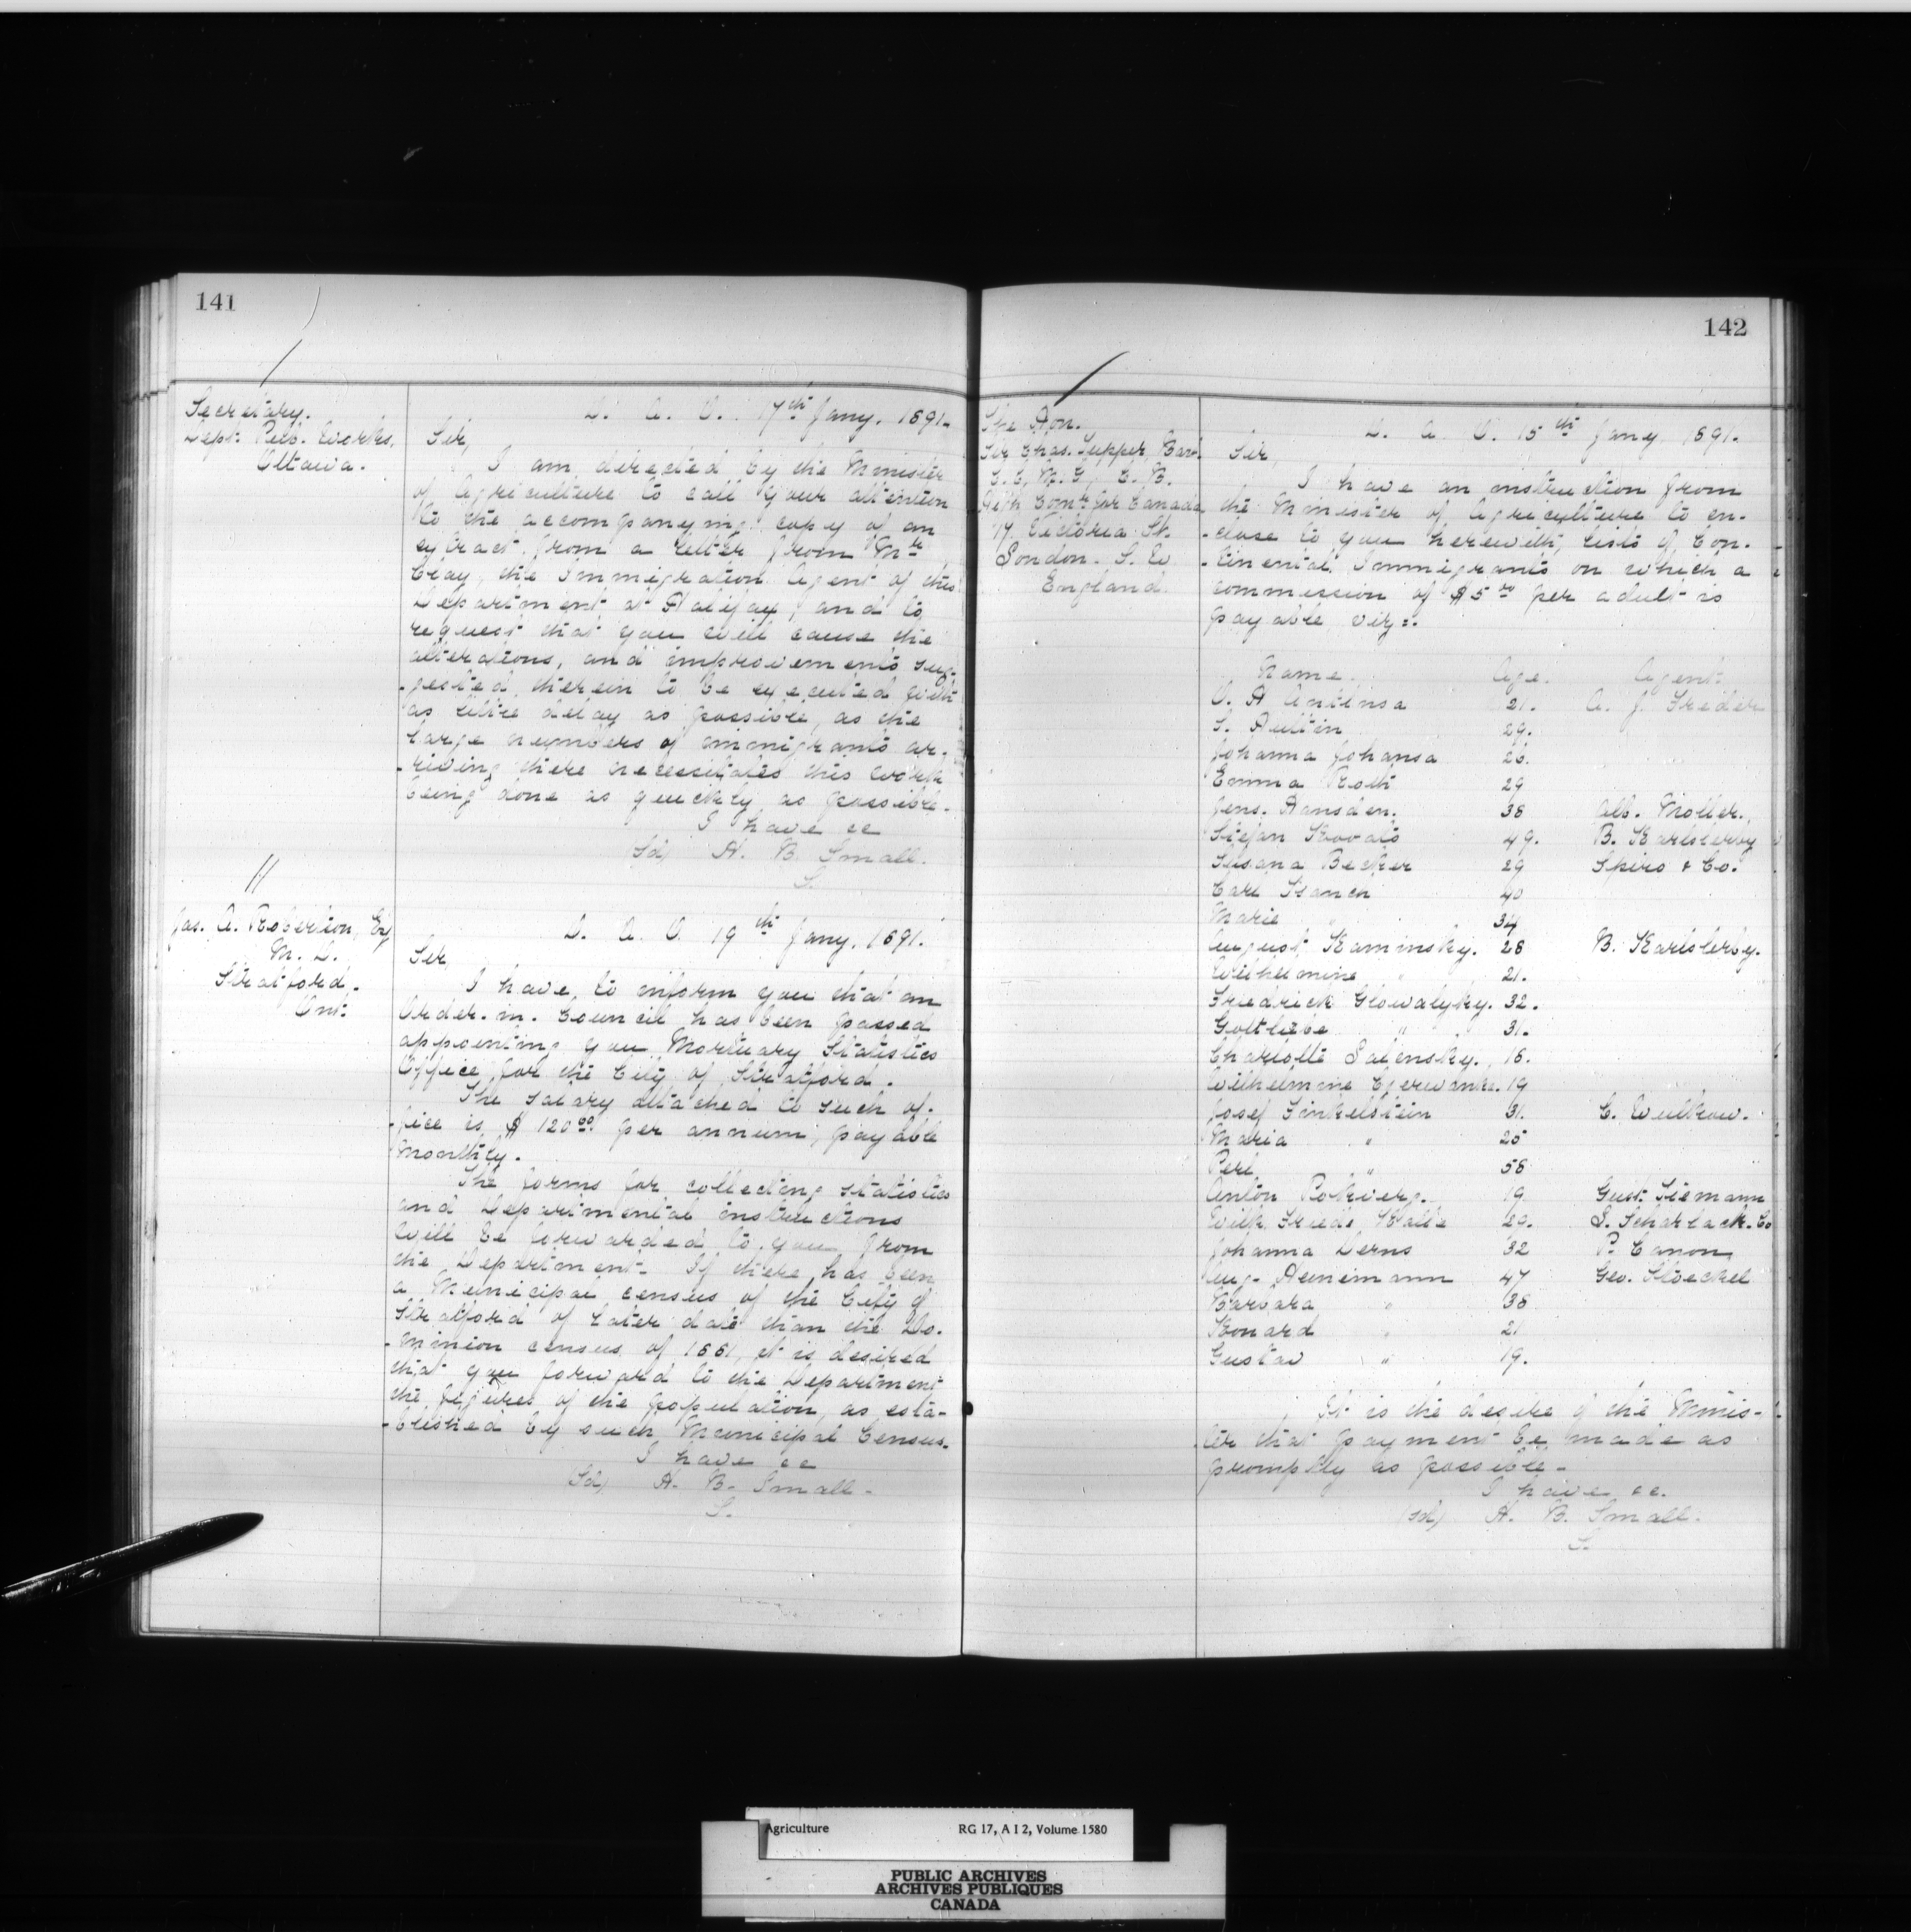 141
Secretary.
Dept. Pub. Works,
Ottawa.
D. A. O. 17th Jany. 1891.
Sir,
I am directed by the Minister
of Agriculture to call your attention
to the accompanying copy of an
extract from a letter from Mr
Clay, the Immigration Agent of this
Department at Halifax, and to
request that you will cause the
alterations, and improvements sug-
-gested therein to be executed with
as little delay as possible, as the
large numbers of immigrants ar-
-riving there necessitates this work
being done as quickly as possible.
I have &c
(Sd) H. B. Small.
S.
Jas. A. Robertson, Esq
M. D.
Stratford.
Ont.
D. A. O. 19th Jany. 1891.
Sir
I have to inform you that an
Order-in-Council has been passed
appointing you Mortuary Statistics
Office for the City of Stratford.
The salary attached to such of-
-fice is $120.00 per annum, payable
monthly.
The forms for collecting statistics
and Departmental instructions
will be forwarded to you from
the Department. If there has been
a Municipal census of the City of
Stratford of later date than the Do-
-minion census of 1881, it is desired
that you forward to the Department
the figures of the population, as esta-
-blished by such Municipal Census.
I have &c
(Sd) H. B. Small.
S.
142
The Hon.
Sir Chas. Tupper, Bart.
G. C. M. G., C. B.
High Comr for Canada
17 Victoria St.
London. S. W
England.
D. A. O. 15th Jany 1891.
Sir,
I have an instruction from
the Minister of Agriculture to en-
-close to you herewith, lists of Con-
-tinental Immigrants on which a
commission of $5.00 per adult is
payable viz:-
Name. Age. Agent.
O. H Antinsa 21. A. J. Frieder
S. Aultin 29.
Johanna Johansa 26.
Emma Roth 29
Jens. Hansden. 38 Alb. Moller.
Stefan Kovats 49. B. Karlsberg
Susana Becker 29 Spiro & Co.
Carl Stanch 40
Marie " 34
August Kaminsky. 28 B. Karlsberg.
Wilhelmine " 21.
Friedrick Glowalyky. 32.
Gottliebe " 31.
Charlotte Salensky. 16.
Wilhelmine Czerwanka. 19
Josef Finkelstein 31. C. Wulkow.
Maria " 25
Perl " 58
Anton Pokwerg. 19 Gust. Siemann
Wilh. Friede. Kalle 29. S. Scharlack. Co
Johanna Derns 32 P. Canon
Aug. Heinemann 47 Geo. Stoeckel
Barbara " 38
Konard " 21
Gustav " 19.
It is the desire of the Minis-
-ter that payment be made as
promptly as possible.
I have &c.
(Sd) H. B. Small.
S.
Agriculture RG 17, A I 2, Volume 1580
PUBLIC ARCHIVES
ARCHIVES PUBLIQUES
CANADA